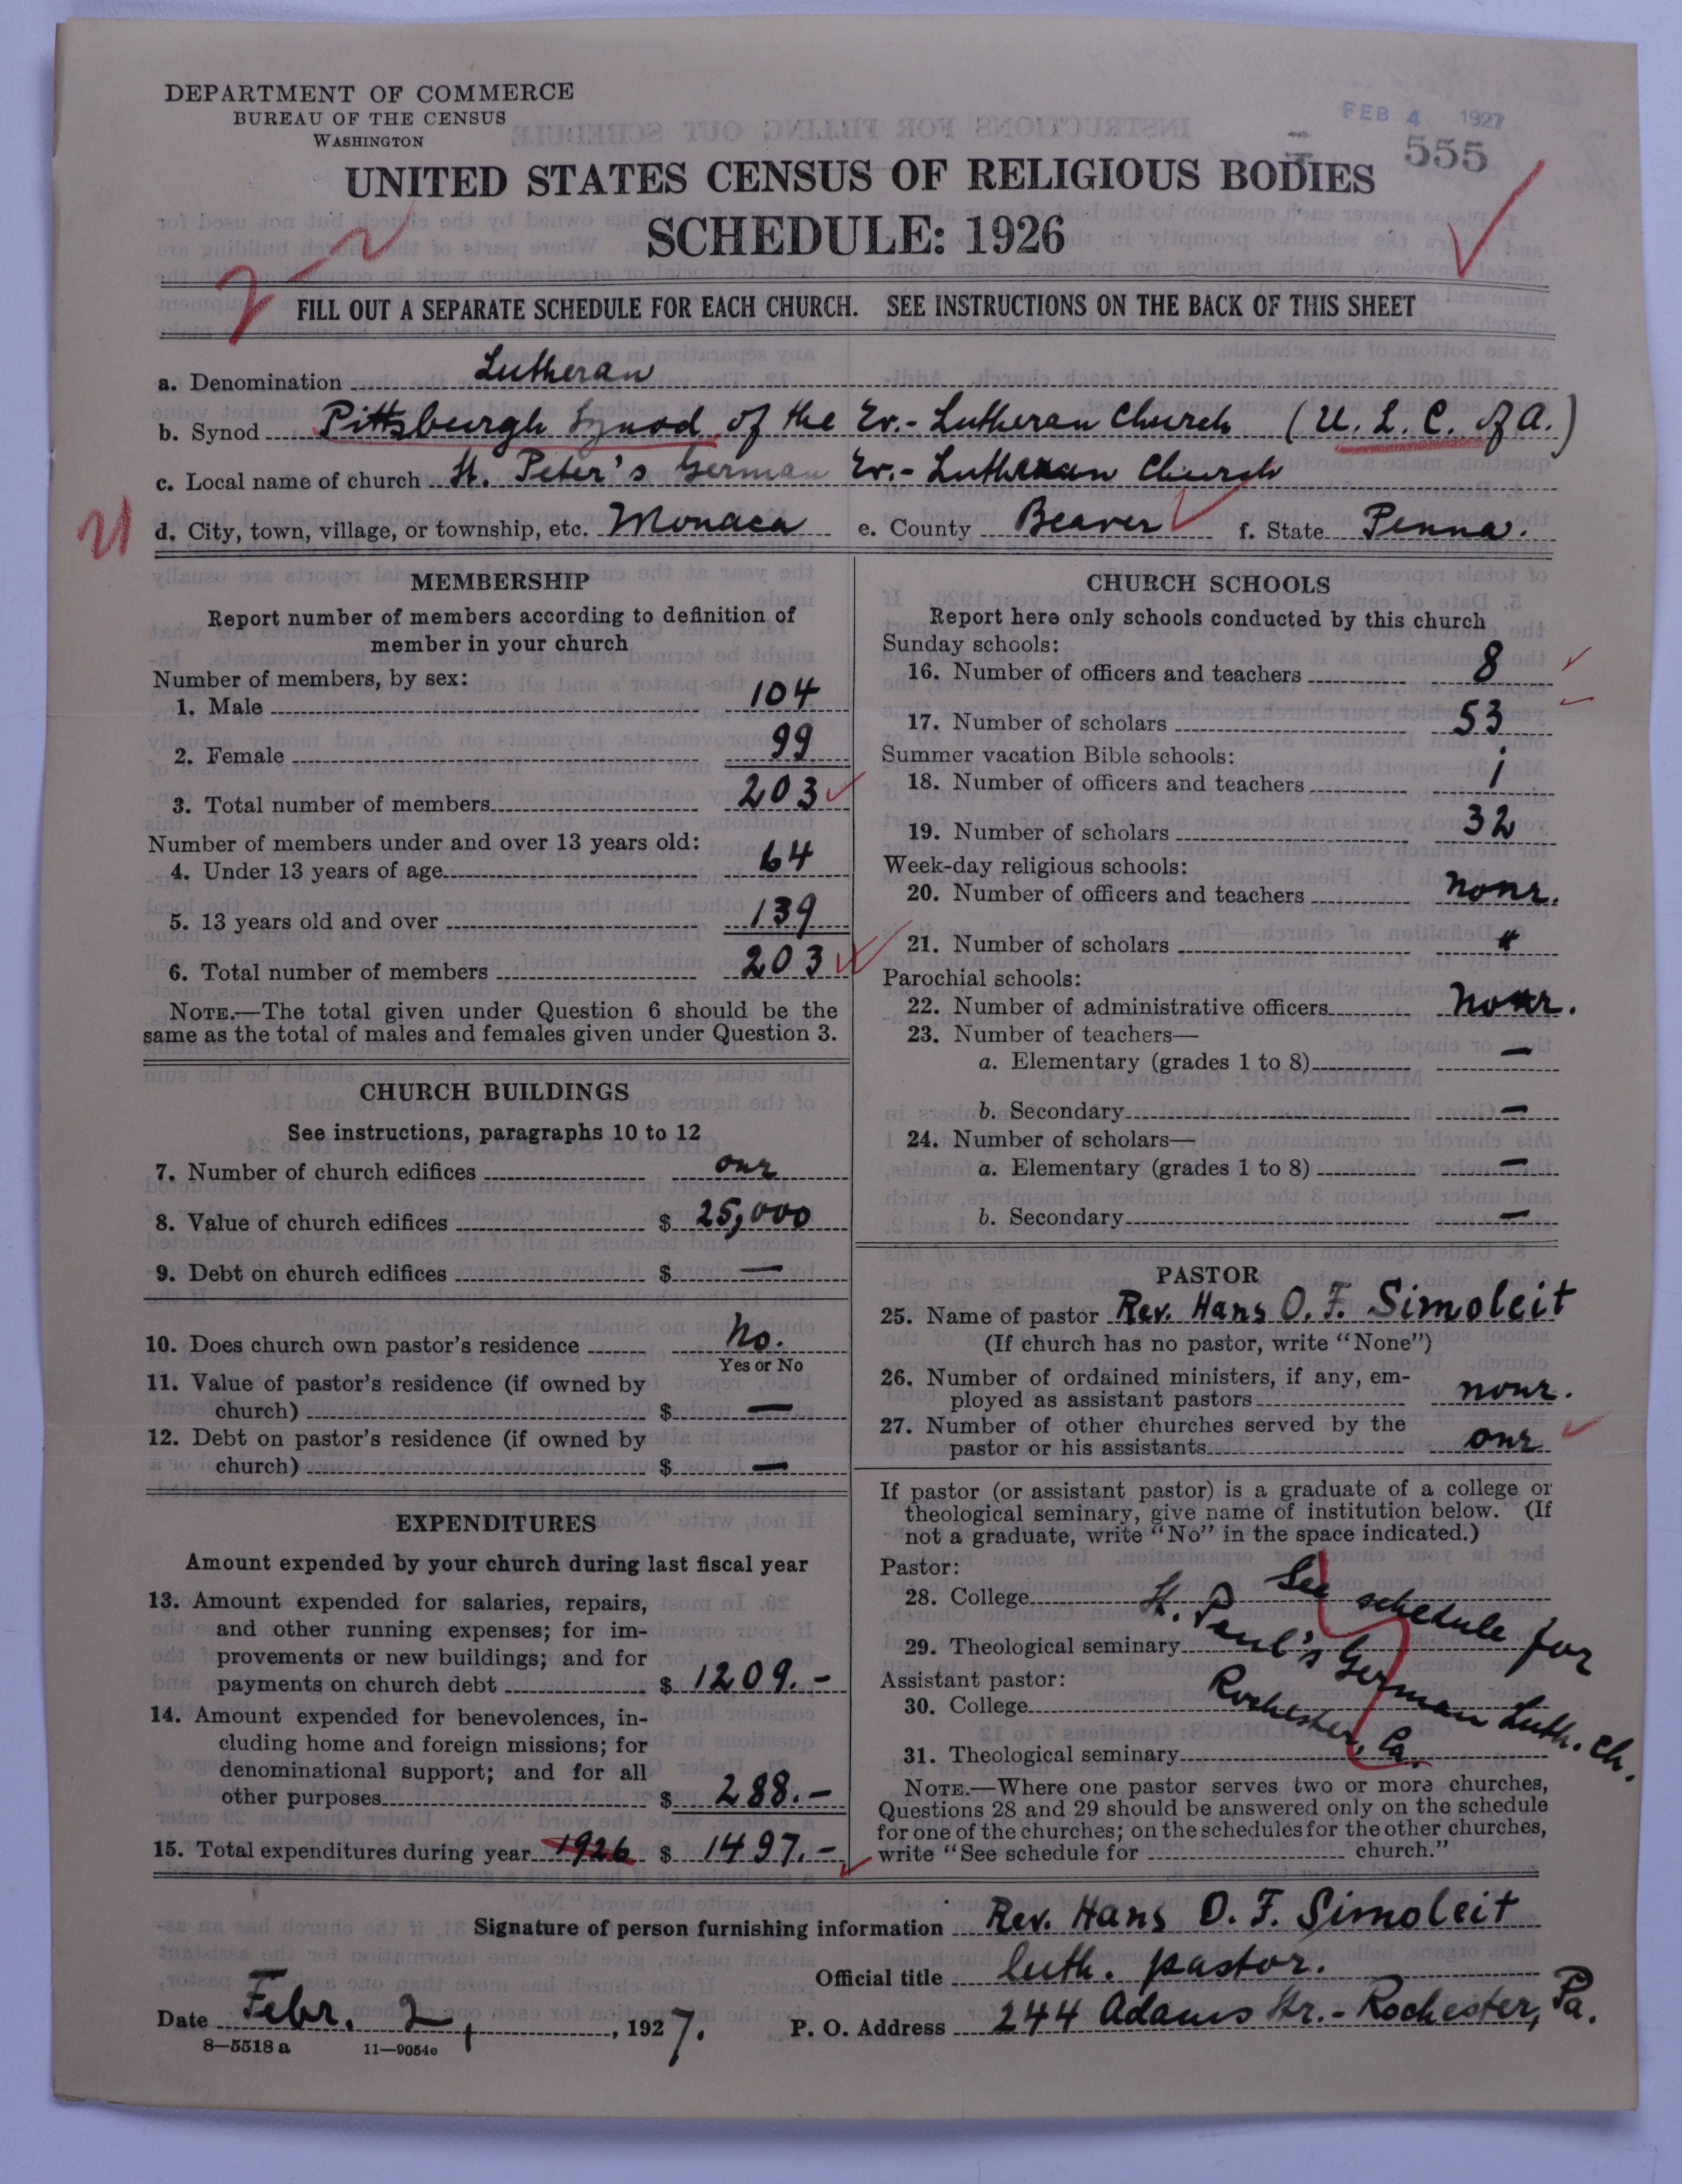 DEPARTMENT OF COMMERCE
BUREAU OF THE CENSUS
WASHINGTON
FEB 4 1927
555
UNITED STATES CENSUS OF RELIGIOUS BODIES
SCHEDULE: 1926
FILL OUT A SEPARATE SCHEDULE FOR EACH CHURCH. SEE INSTRUCTIONS ON THE BACK OF THIS SHEET
a. Denomination Lutheran
b. Synod Pittsburgh Synod of the Ev.- Lutheran Church (U. L. C. of A.)
c. Local name of church St. Peter's German Ev.- Lutheran Church
d. City, town, village, or township, etc. Monaca e. County Beaver f. State Penna.
MEMBERSHIP
Report number of members according to definition of
member in your church
Number of members, by sex:
1. Male 104
2. Female 99
3. Total number of members 203
Number of members under and over 13 years old:
4. Under 13 years of age 64
5. 13 years old and over 139
6. Total number of members 203
NOTE.—The total given under Question 6 should be the
same as the total of males and females given under Question 3.
CHURCH BUILDINGS
See instructions, paragraphs 10 to 12
7. Number of church edifices one
8. Value of church edifices $ 25,000
9. Debt on church edifices $ —
10. Does church own pastor's residence No.
Yes or No
11. Value of pastor's residence (if owned by
church) $ —
12. Debt on pastor's residence (if owned by
church) $ —
EXPENDITURES
Amount expended by your church during last fiscal year
13. Amount expended for salaries, repairs,
and other running expenses; for im-
provements or new buildings; and for
payments on church debt $ 1209.-
14. Amount expended for benevolences, in-
cluding home and foreign missions; for
denominational support; and for all
other purposes $ 288.-
15. Total expenditures during year 1926 $ 1497.-
CHURCH SCHOOLS
Report here only schools conducted by this church
Sunday schools:
16. Number of officers and teachers 8
17. Number of scholars 53
Summer vacation Bible schools:
18. Number of officers and teachers 1
19. Number of scholars 32
Week-day religious schools:
20. Number of officers and teachers none.
21. Number of scholars "
Parochial schools:
22. Number of administrative officers none.
23. Number of teachers—
a. Elementary (grades 1 to 8) —
b. Secondary —
24. Number of scholars—
a. Elementary (grades 1 to 8) —
b. Secondary —
PASTOR
25. Name of pastor Rev. Hans O. F. Simoleit
(If church has no pastor, write "None")
26. Number of ordained ministers, if any, em-
ployed as assistant pastors none.
27. Number of other churches served by the
pastor or his assistants one
If pastor (or assistant pastor) is a graduate of a college or
theological seminary, give name of institution below. (If
not a graduate, write "No" in the space indicated.)
Pastor:
28. College
29. Theological seminary
Assistant pastor:
30. College
31. Theological seminary
See schedule for
St. Paul's German Luth. Ch.
Rochester, Pa.
NOTE.—Where one pastor serves two or more churches,
Questions 28 and 29 should be answered only on the schedule
for one of the churches; on the schedules for the other churches,
write "See schedule for church."
Signature of person furnishing information Rev. Hans O. F. Simoleit
Official title luth. pastor.
Date Febr. 2, 1927. P. O. Address 244 Adams Str.- Rochester, Pa.
8—5518 a 11—9054e